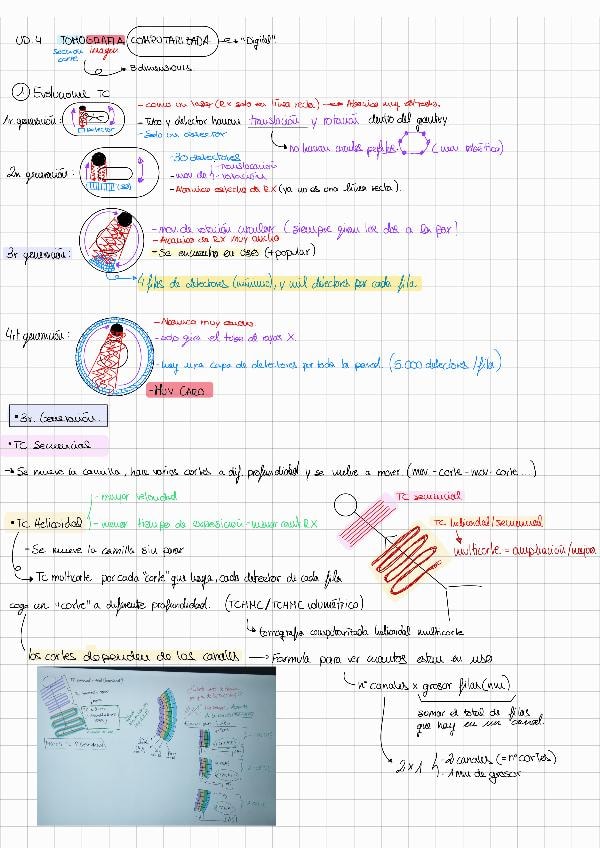 UD. 4 TOMOGRAFIA COMPUTARIZADA → "Digital"
Sección corte imagen
3 dimensiones
① Evolución TC
1r generación:
DETECTOR
- como un laser (Rx solo en linea recta) → Abanico muy estrecho.
- Tubo y detector hacian translación y rotación dentro del gantry
- Solo un detector
→ No hacian circulos perfectos (mov. robótico)
2n generación:
(30)
- 30 detectores
- mov. de translocación
rotación
- Abanico estrecho de RX (ya no es una línea recta).
3r generación:
- mov. de rotación circular (siempre giran los dos a la par!
- Abanico de RX muy ancho
- Se encuentra en usos (+ popular)
4 filas de detectores (mínimo), y mil detectores por cada fila
4rt generación:
- Abanico muy ancho.
- solo gira el tubo de rayos X.
- hay una capa de detectores por toda la pared. (5.000 detectores / fila)
- MUY CARO.
• 3r. Generación.
• TC Secuencial
→ Se mueve la camilla, hace varios cortes a dif. profundidad y se vuelve a mover. (mov. - corte - mov. corte...)
- mayor velocidad
• TC Helicoidal
- menor tiempo de exposición - menor cant RX
- Se mueve la camilla sin parar
TC secuencial
TC helicoidal/
multicorte = ampliación/mayor
→ TC multicorte por cada "corte" que haga, cada detector de cada fila
coge un "corte" a diferente profundidad. (TCHMC/TCMMC volumétrico)
↳ tomografia computarizada helicoidal multicorte
los cortes dependen de los canales → Formula para ver cuantos estan en uso
↳ nº canales x grosor filas (mm)
sumar el total de filas
que hay en un canal.
2 x 1
- 2 canales (= nº cortes)
- 1 mm de grosor